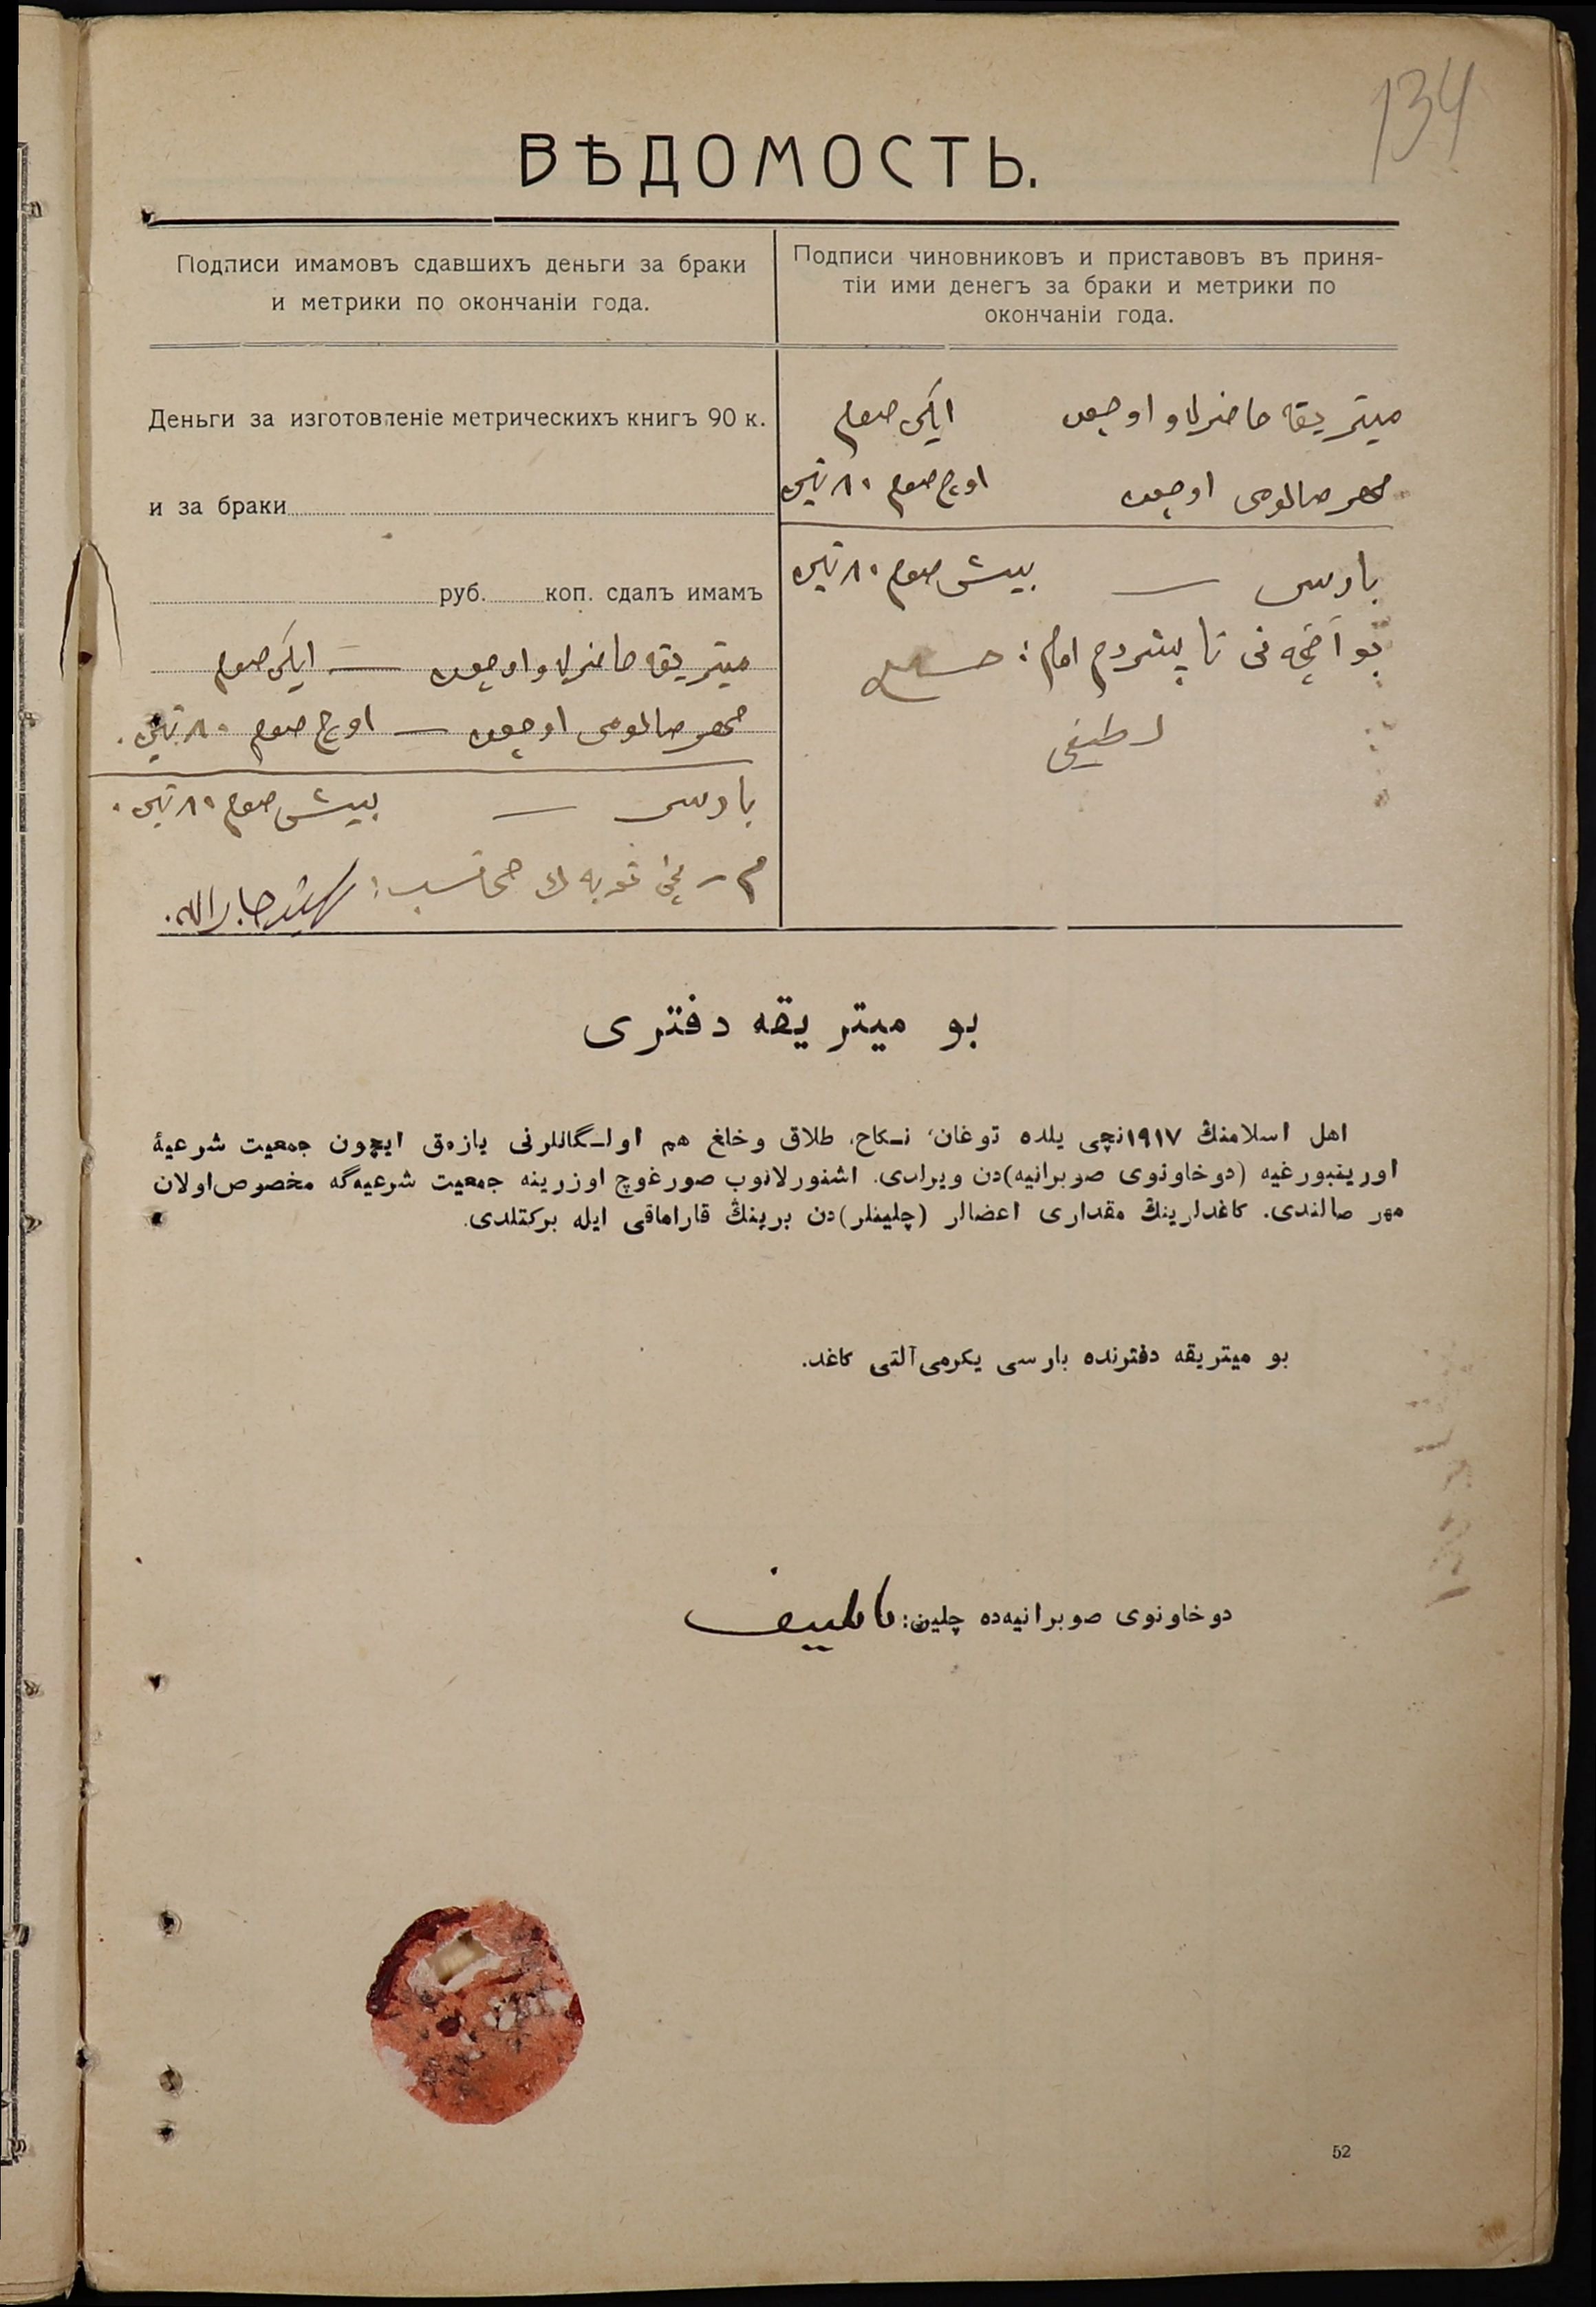 134
ВѢДОМОСТЬ.
Подписи имамовъ сдавшихъ деньги за браки
и метрики по окончаніи года.
Подписи чиновниковъ и приставовъ въ приня-
тіи ими денегъ за браки и метрики по
окончаніи года.
Деньги за изготовленіе метрическихъ книгъ 90 к.
и за браки
руб. коп. сдалъ имамъ
ميتريقه حاضرلاو اوچون — ايكى صوم
مهر صالومى اوچون — اوچ صوم ٨٠ تين.
بارسى — بيش صوم ٨٠ تين.
محتسب:
ميتريقه حاضرلاو اوچون ايكى صوم
مهر صالومى اوچون اوچ صوم ٨٠ تين
بارسى — بيش صوم ٨٠ تين
بو آقچه نى تاپشردم امام:
لطيفى
بو ميتريقه دفترى
اهل اسلامنڭ ١٩١٧نچى يلده توغان، نـكاح، طلاق وخلغ هم اولـگانلرنى يازمق ايچون جمعيت شرعيۀ
اورينبورغيه (دوخاونوى صوبرانيه)دن ويرلدى. اشنورلانوب صورغوچ اوزرينه جمعيت شرعيه‌گه مخصوص اولان
مهر صالندى. كاغدلرينڭ مقدارى اعضالر (چلينلر)دن برينڭ قاراماقى ايله بركتلدى.
بو ميتريقه دفترنده بارسى يكرمى آلتى كاغد.
دوخاونوى صوبرانيه‌ده چلين:
52